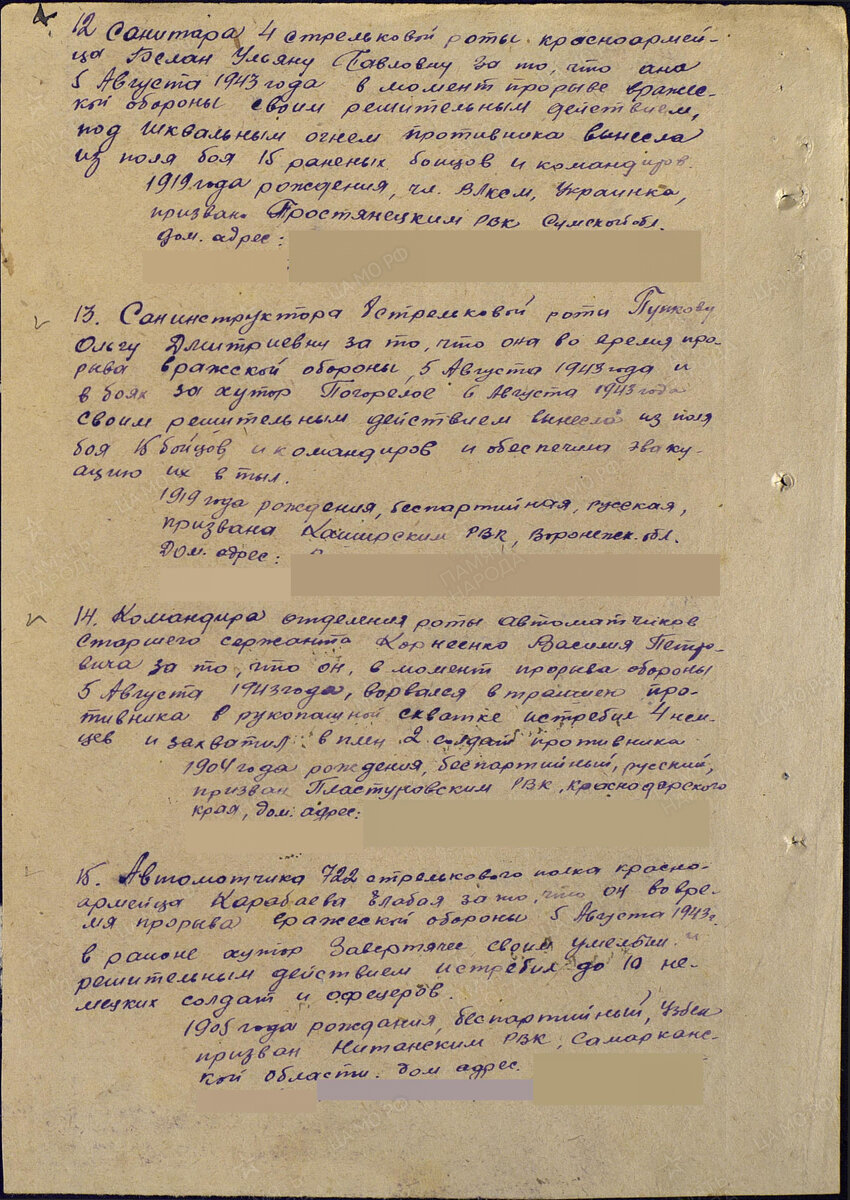 12 Санитара 4 стрелковой роты красноармей-
ца Белан Ульяну Павловну за то, что она
5 Августа 1943 года в момент прорыве вражес-
кой обороны своим решительным действием,
под шквальным огнем противника вынесла
из поля боя 15 раненых бойцов и командиров.
1919 года рождения, чл. ВЛКСМ, Украинка,
призвана Тростянецким РВК Сумской обл.
дом. адрес:
13. Санинструктора стрелковой роты Пупкову
Ольгу Дмитриевну за то, что она во время про-
рыва вражской обороны 5 Августа 1943 года и
в боях за хутор Погорелое 6 Августа 1943 года
своим решительным действием вынесла из поля
боя 15 бойцов и командиров и обеспечила эваку-
ацию их в тыл.
1919 года рождения, беспартийная, русская,
призвана Каширским РВК, Воронежск. обл.
Дом. адрес:
14. Командира отделения роты автоматчиков
старшего сержанта Корнеенко Василия Петро-
вича за то, что он, в момент прорыва обороны
5 Августа 1943 года, ворвался в траншею про-
тивника в рукопашной схватке истребил 4 нем-
цев и захватил в плен 2 солдат противника
1904 года рождения, беспартийный, русский,
призван Пластуновским РВК, Краснодарского
края, дом. адрес:
15. Автоматчика 722 стрелкового полка красно-
армейца Карабаева за то, что он во вре-
мя прорыва вражеской обороны 5 Августа 1943 г.
в районе хутор Завертячее своим умелым и
решительным действием истребил до 10 не-
мецких солдат и офецеров.
1905 года рождания, беспартийный, Узбек
призван РВК, Самарканс-
кой области. дом адрес.